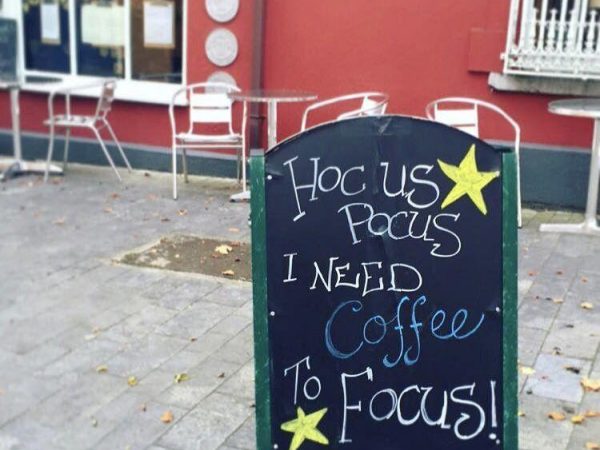 Hocus
Pocus
I NEED
Coffee
To Focus!